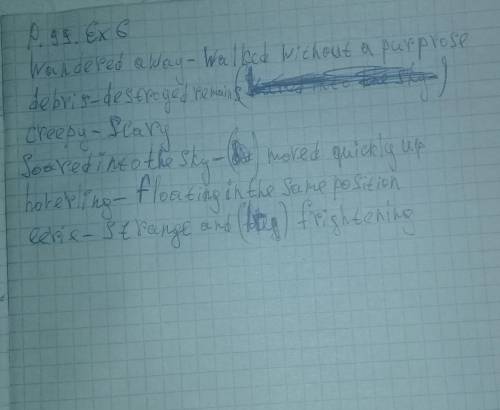 P. 99. Ex 6
Wandered away - Walked without a purprose
debris - destroyed remains ( )
creepy - Scary
Soared into the sky - ( ) moved quickly up
hoverling - floating in the same position
eeris - Strange and ( ) frightening